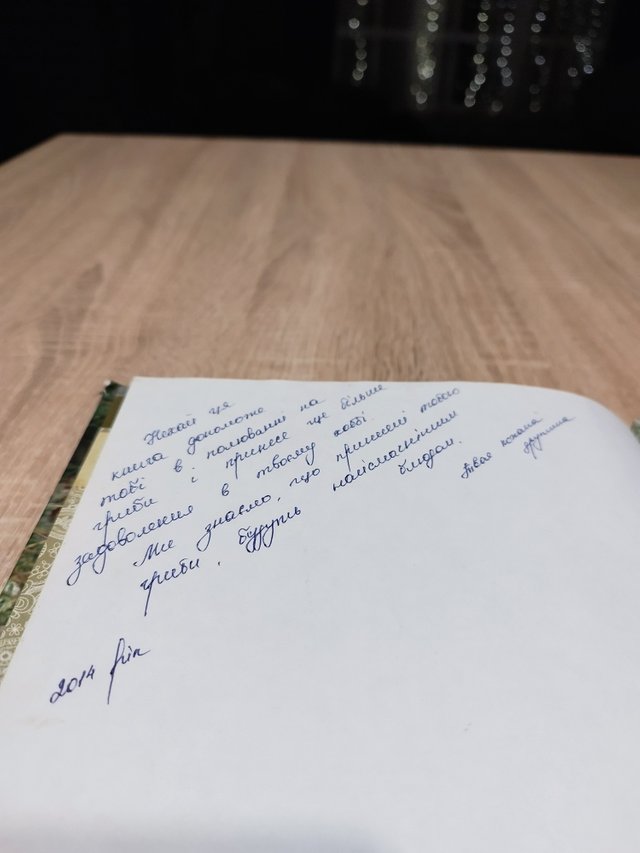 Нехай ця
книга допоможе
тобі в полюванні на
гриби і принесе ще більше
задоволення в твоєму хоббі.
Ми знаємо, що принесені тобою
гриби, будуть найсмачнішим
блюдом.
Твоя кохана
дружина
2014 рік